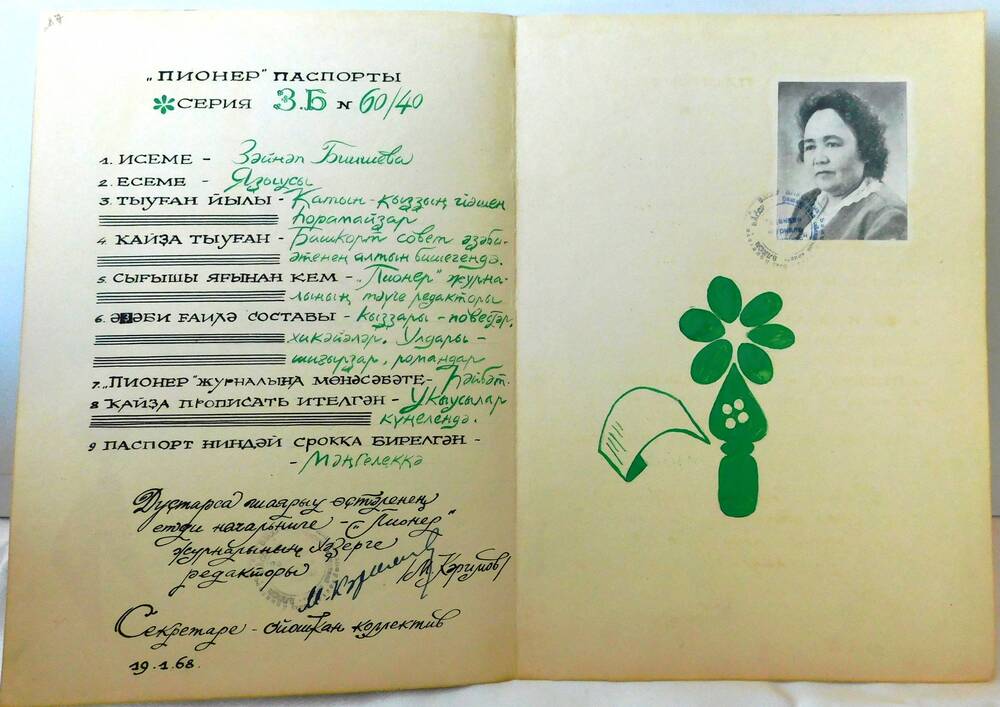 „ПИОНЕР" ПАСПОРТЫ
СЕРИЯ З.Б N 60/40
1. ИСЕМЕ - Зәйнәп Биишева
2. ЕСЕМЕ - Яҙыусы
3. ТЫУҒАН ЙЫЛЫ - Ҡатын-ҡыҙҙың йәшен
һорамайҙар
4. ҠАЙҘА ТЫУҒАН - Башҡорт совет әҙәби-
әтенең алтын бишегендә.
5. СЫҒЫШЫ ЯҒЫНАН КЕМ - „Пионер" журна-
лының тәүге редакторы
6. ӘҘӘБИ ҒАИЛӘ СОСТАВЫ - Ҡыҙҙары - повестәр,
хикәйәләр. Улдары -
шиғырҙар, романдар
7. „ПИОНЕР" ЖУРНАЛЫНА МӨНӘСӘБӘТЕ - Һәйбәт.
8 ҠАЙҘА ПРОПИСАТЬ ИТЕЛГӘН - Уҡыусылар
күңелендә.
9 ПАСПОРТ НИНДӘЙ СРОККА БИРЕЛГӘН -
- Мәңгелеккә
Дуҫтарса шаярыу өҫтәленең
етди начальниге - „Пионер"
журналының хәҙерге
редакторы М. Кәримов
Секретаре - ойошҡан коллектив
19.1.68.